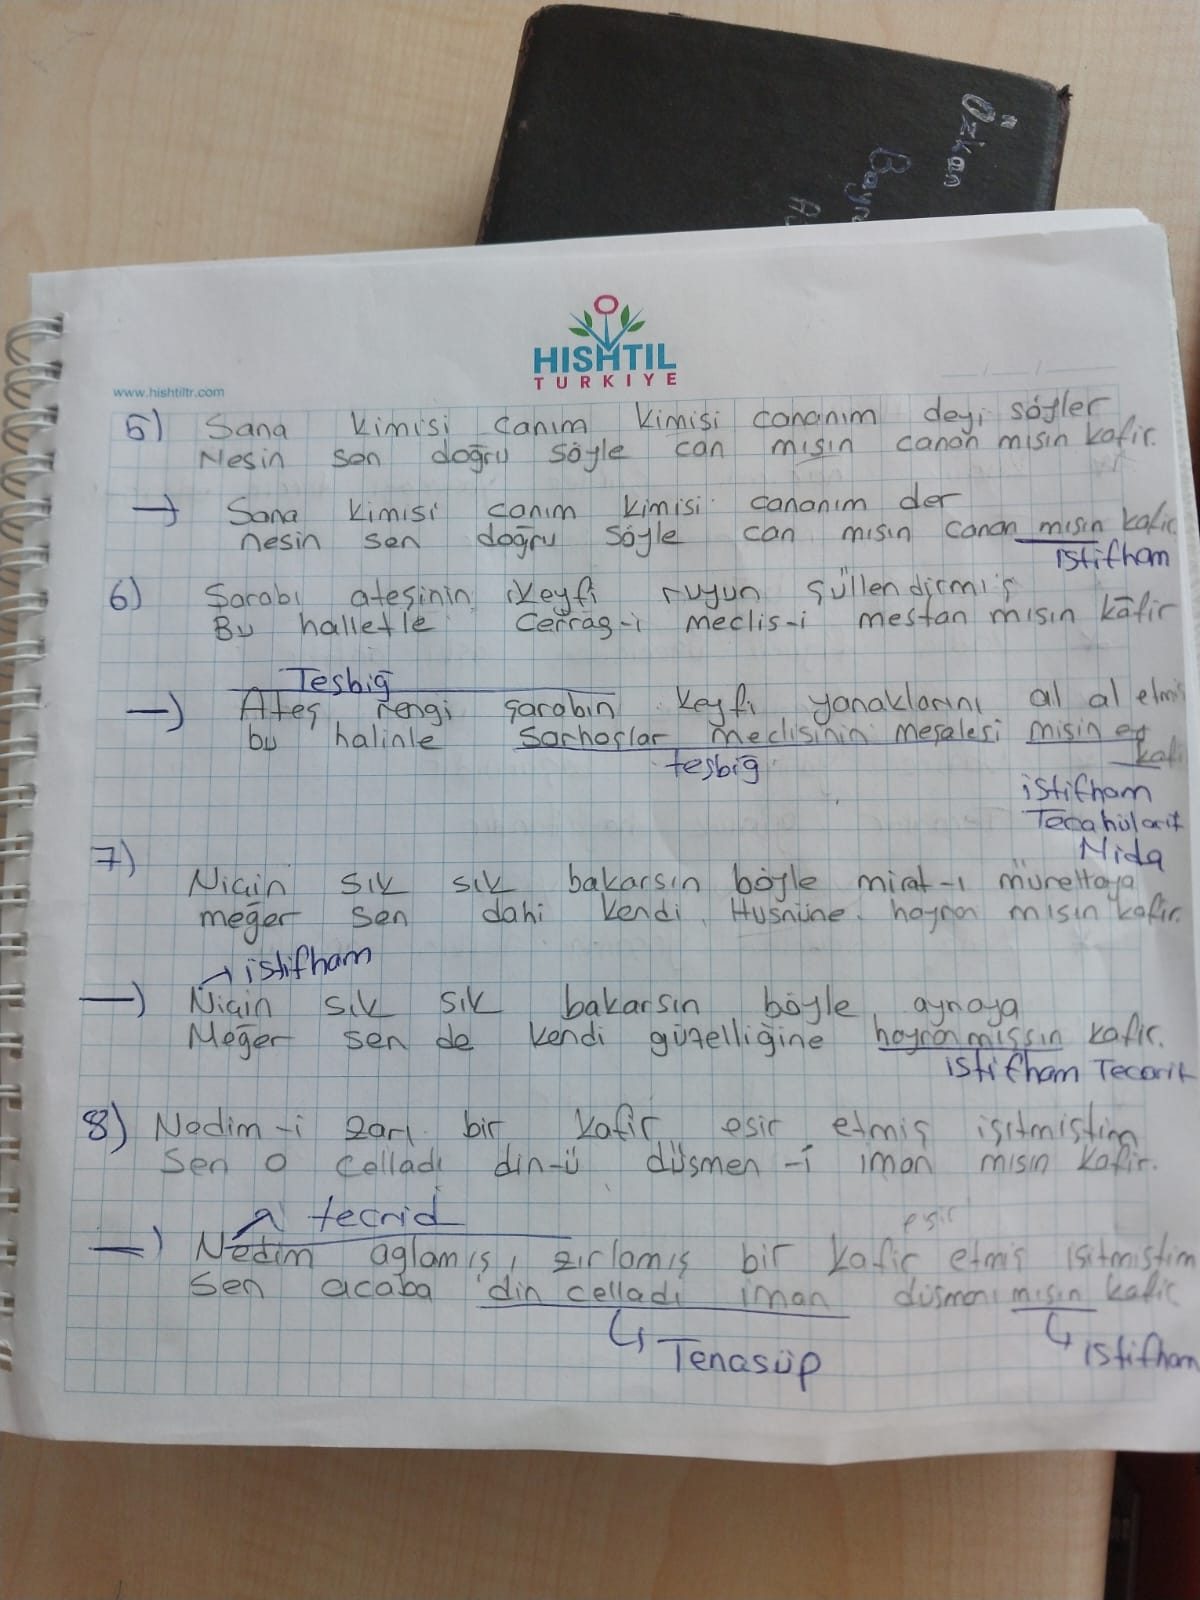 Özkan
Bayr
HISHTIL
TURKIYE
www.hishtiltr.com
5) Sana kimisi canım kimisi cananım deyi söyler
Nesin sen doğru söyle can mısın canan mısın kafir.
→ Sana kimisi canım kimisi cananım der
nesin sen doğru söyle can mısın canan mısın kafir
istifham
6) Şarabı ateşinin keyfi ruyun şüllendirmiş
Bu halletle cerrağ-i meclis-i mestan mısın kâfir
Teşbiğ
→ Ateş rengi şarabın keyfi yanaklarını al al etmiş
bu halinle sarhoşlar meclisinin meşalesi mısın ey
kafi
teşbiğ
istifham
Tecahülarif
Nida
7)
Niçin sık sık bakarsın böyle mirat-ı mürettaya
meğer sen dahi kendi Hüsnüne hayran mısın kafir.
→ istifham
→ Niçin sık sık bakarsın böyle aynaya
Meğer sen de kendi güzelliğine hayranmışsın kafir.
istifham Tecarit
8) Nedim-i zarı bir kafir esir etmiş işitmiştim
Sen o celladı din-ü düşmen-i iman mısın kafir.
tecrid
esir
→ Nedim aglamış, zırlamış bir kafir etmiş işitmiştim
Sen acaba din celladı iman düşmanı mısın kafir
↳ Tenasüp
↳ istifham